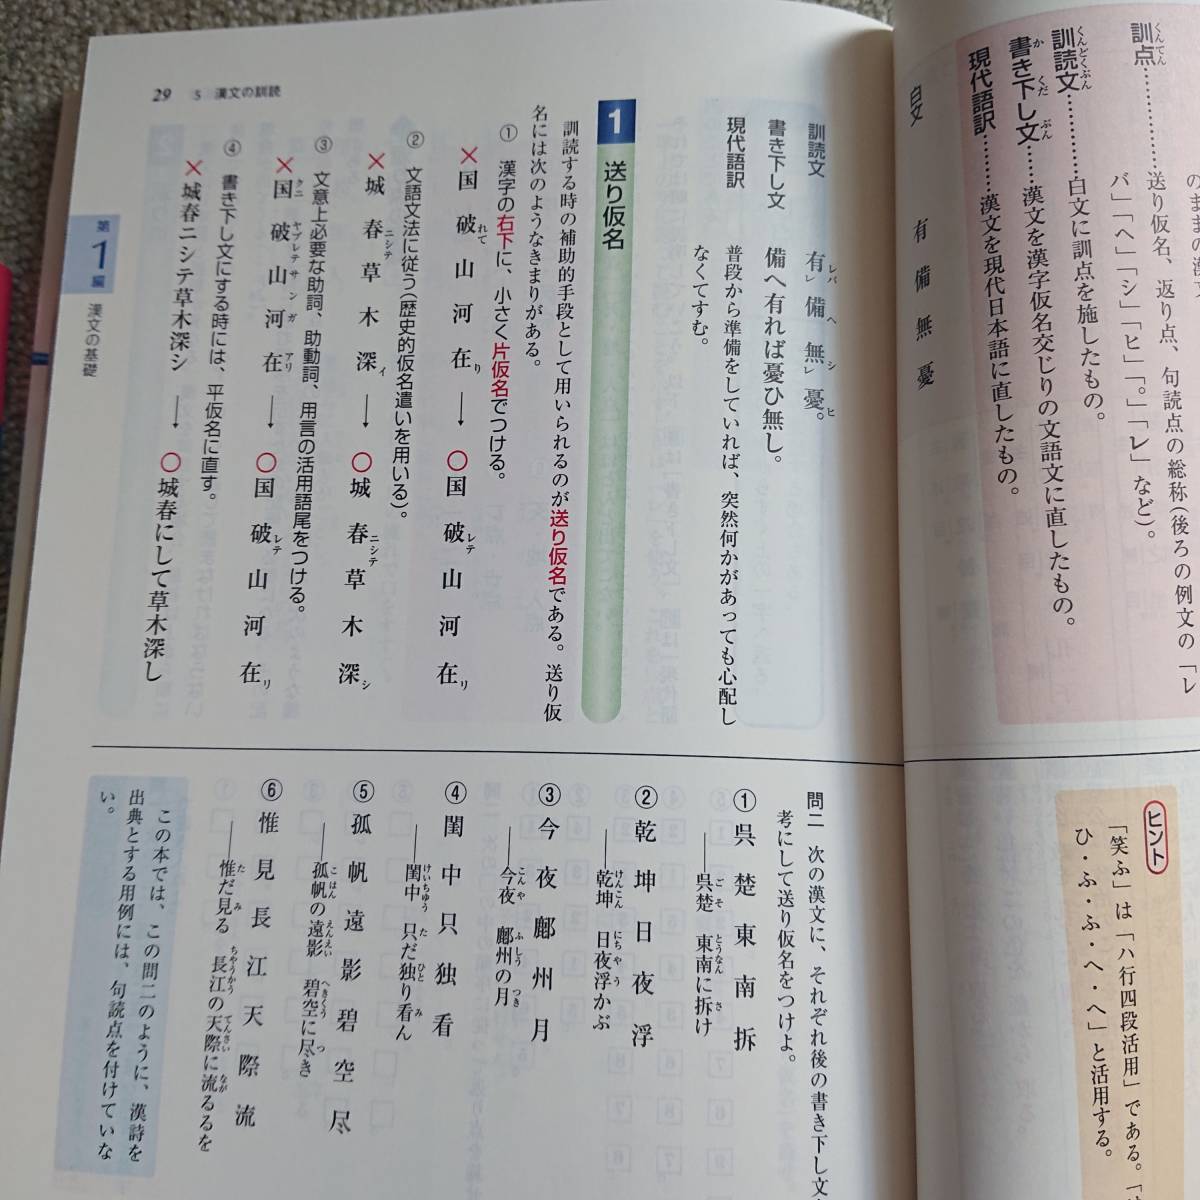 のままの漢文
訓点………送り仮名、返り点、句読点の総称(後ろの例文の「レ
バ」「ヘ」「シ」「ヒ」「。」「レ」など)。
訓読文………白文に訓点を施したもの。
書き下し文……漢文を漢字仮名交じりの文語文に直したもの。
現代語訳……漢文を現代日本語に直したもの。
白文 有備無憂
訓読文 有レバレ備ヘ無シレ憂ヒ。
書き下し文 備へ有れば憂ひ無し。
現代語訳 普段から準備をしていれば、突然何かがあっても心配し
なくてすむ。
1 送り仮名
訓読する時の補助的手段として用いられるのが送り仮名である。送り仮
名には次のようなきまりがある。
① 漢字の右下に、小さく片仮名でつける。
×国破れて山河在り→○国破レテ山河在リ
② 文語文法に従う(歴史的仮名遣いを用いる)。
×城春ニシテ草木深イ→○城春ニシテ草木深シ
③ 文意上必要な助詞、助動詞、用言の活用語尾をつける。
×国クニ破ヤブレテ山サン河ガ在アリ→○国破レテ山河在リ
④ 書き下し文にする時には、平仮名に直す。
×城春ニシテ草木深シ→○城春にして草木深し
29 5 漢文の訓読
第1編 漢文の基礎
ヒント
「笑ふ」は「ハ行四段活用」である。
ひ・ふ・ふ・へ・へ」と活用する。
問二 次の漢文に、それぞれ後の書き下し文
考にして送り仮名をつけよ。
①呉楚東南拆
――呉楚 東南に拆け
②乾坤日夜浮
――乾坤 日夜浮かぶ
③今夜鄜州月
――今夜 鄜州の月
④閨中只独看
――閨中 只だ独り看ん
⑤孤帆遠影碧空尽
――孤帆の遠影 碧空に尽き
⑥惟見長江天際流
――惟だ見る 長江の天際に流るるを
この本では、この問二のように、漢詩を
出典とする用例には、句読点を付けていな
い。